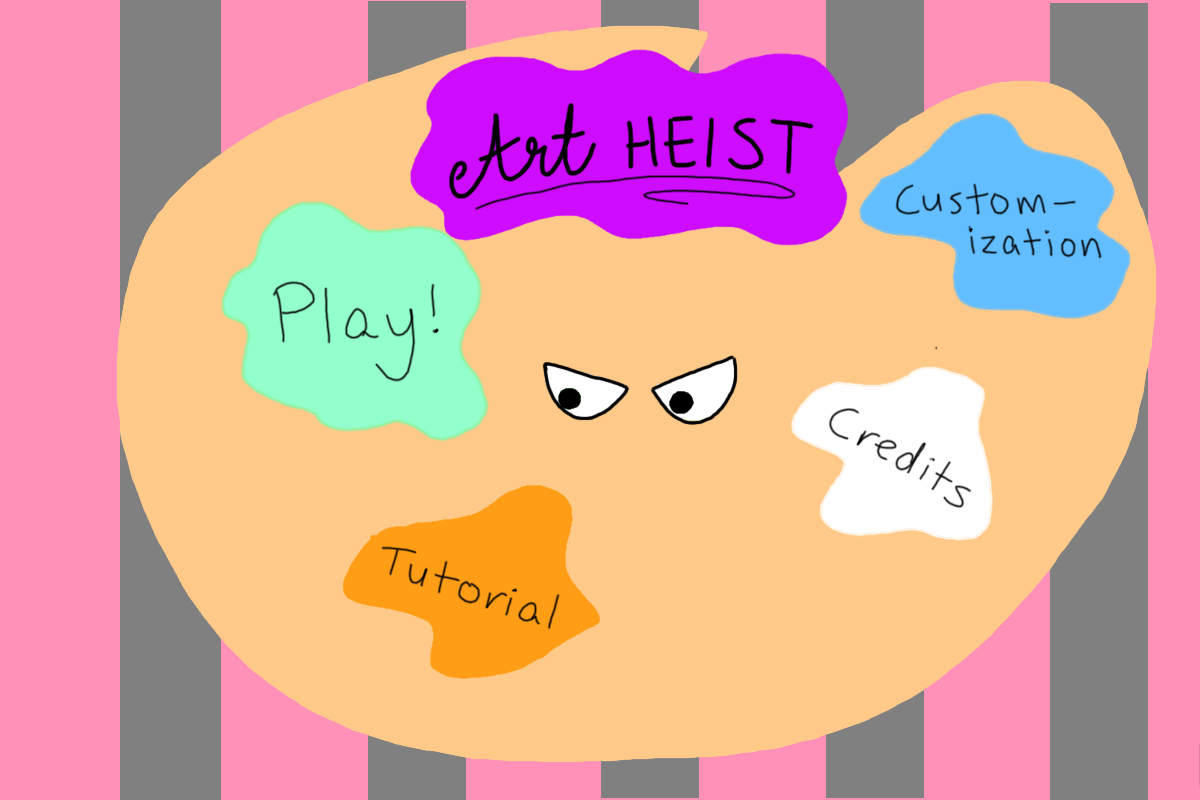 Art HEIST
Custom-
ization
Play!
Credits
Tutorial